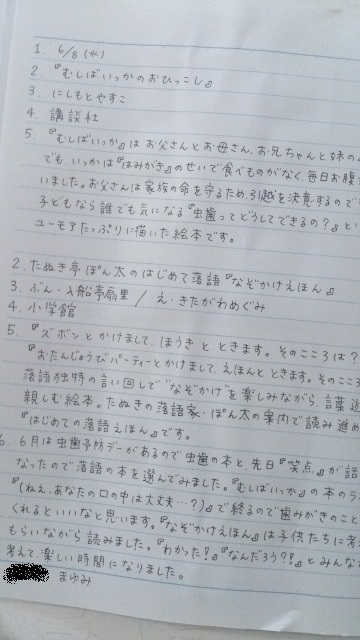 1. 6/8 (水)
2. 『むしばいっかのおひっこし』
3. にしもとやすこ
4. 講談社
5. 『むしばいっか』はお父さんとお母さん、お兄ちゃんと妹の
でも いっかは『はみがき』のせいで食べものがなく、毎日お腹
いました。お父さんは家族の命を守るため引越を決意するので
子どもなら誰でも気になる『虫歯ってどうしてできるの?』と
ユーモアたっぷりに描いた絵本です。
2. たぬき亭ぽん太のはじめて落語『なぞかけえほん』
3. ぶん・入船亭扇里 / え・きたがわめぐみ
4. 小学館
5. 『ズボンとかけまして、ほうきとときます。そのこころは?
『おたんじょうびパーティーとかけまして、えほんとときます。そのここ
落語独特の言い回しで“なぞかけ”を楽しみながら、言葉
親しむ絵本。たぬきの落語家・ぽん太の案内で読み進
『はじめての落語えほん』です。
6. 6月は虫歯予防デーがあるので虫歯の本と、先日『笑点』が話
なったので落語の本を選んでみました。『むしばいっか』の本のラ
『(ねえ、あなたの口の中は大丈夫…?)』で終るので歯みがきのこと
くれるといいなと思います。『なぞかけえほん』は子供たちに考
もらいながら読みました。『わかった!』『なんだろう?!』とみんな
考えて、楽しい時間になりました。
まゆみ